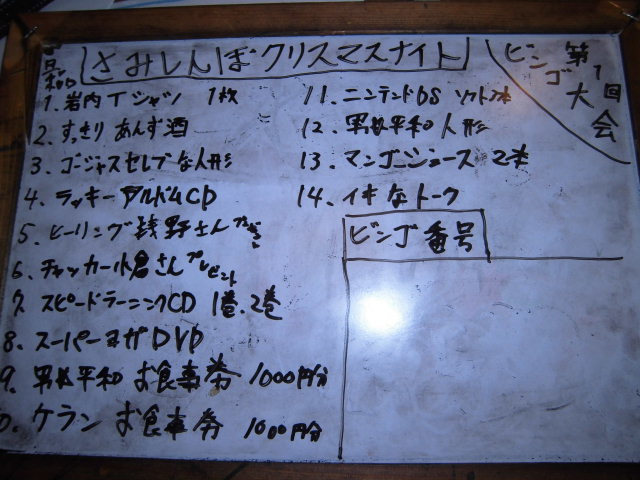 さみしんぼクリスマスナイト
第1回
ビンゴ大会
1. 岩内Tシャツ 1枚
2. すっきり あんず酒
3. ゴージャスセレブな人形
4. ラッキーアルバムCD
5. ヒーリング 浅野さんプレゼント
6. チャッカー小倉さんプレゼント
7. スピードラーニングCD 1巻、2巻
8. スーパーヨガDVD
9. 平和 お食事券 1000円分
10. ケラン お食事券 1000円分
11. ニンテンドDS ソフト2本
12. 平和人形
13. マンゴージュース 2本
14. イキなトーク
ビンゴ番号